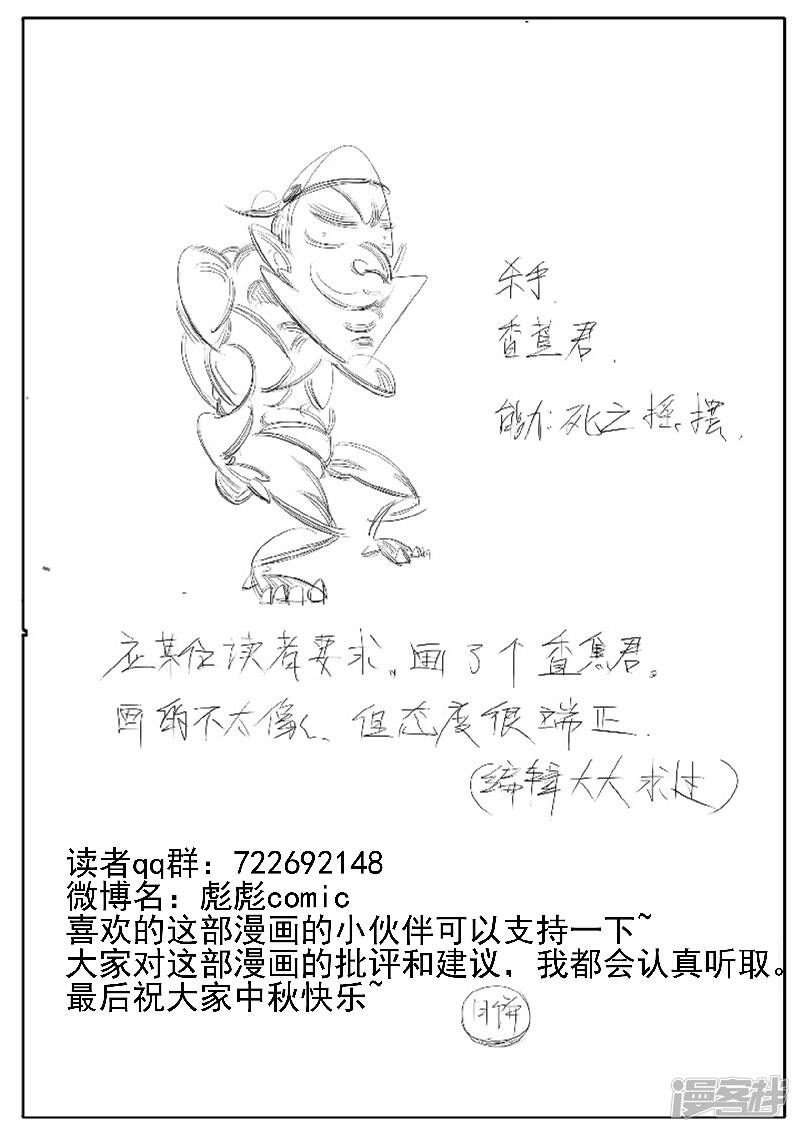 杀手
香蕉君.
能力:死之摇摆.
应某位读者要求、画了个香蕉君。
画的不太像、但态度很端正.
(编辑大大求过)
读者qq群：722692148
微博名：彪彪comic
喜欢的这部漫画的小伙伴可以支持一下~
大家对这部漫画的批评和建议，我都会认真听取。
最后祝大家中秋快乐~
月饼
漫客栈